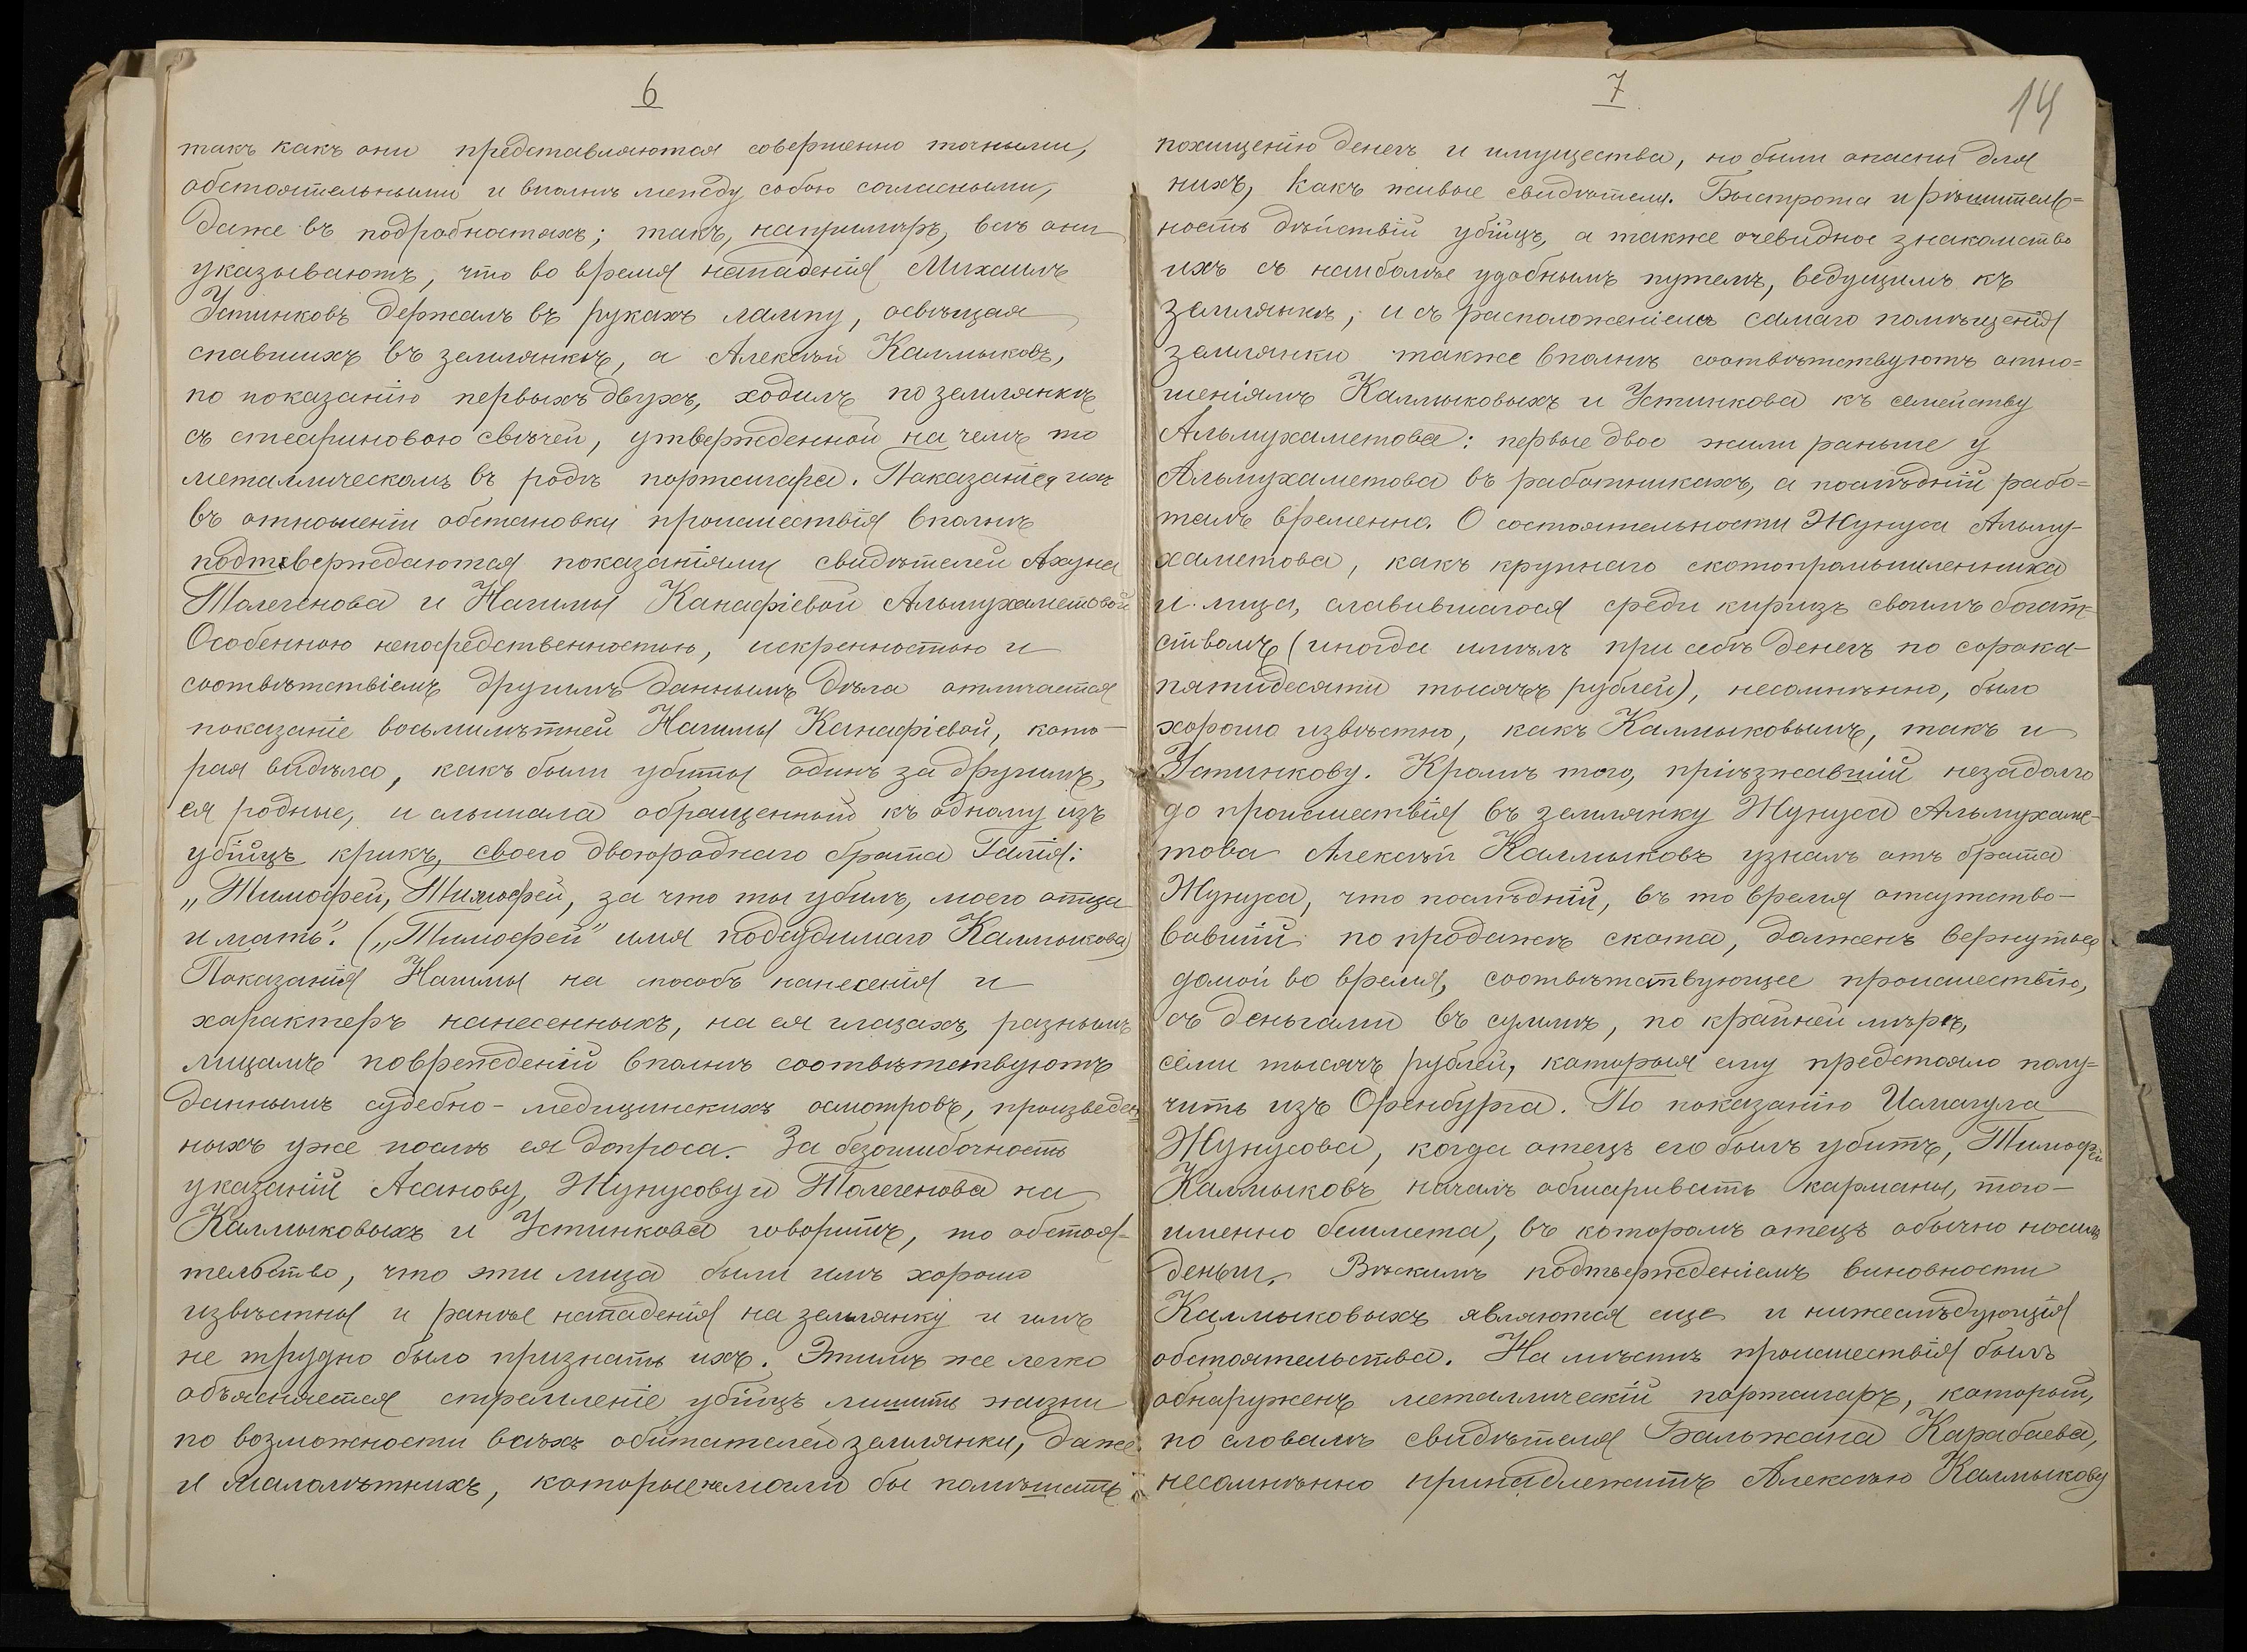 6
такъ какъ они представляются совершенно точными,
обстоятельными и вполнѣ между собою согласными,
даже въ подробностяхъ; такъ, напримѣръ, всѣ они
указываютъ, что во время нападенія Михаилъ
Устинковъ держалъ въ рукахъ лампу, освѣщая
спавшихъ въ землянкѣ, а Алексѣй Калмыковъ,
по показанію первыхъ двухъ, ходилъ по землянкѣ
съ стеариновою свѣчей, утвержденной на чемъ то
металлическомъ въ родѣ портсигара. Показанія ихъ
въ отношеніи обстановки происшествія вполнѣ
подтверждаются показаніями свидѣтелей Ахуна
Толегенова и Нагимы Канафіевой Альмухаметовой
Особенною непосредственностью, искренностью и
соотвѣтствіемъ другимъ даннымъ дѣла отличается
показаніе восьмилѣтней Нагимы Канафіевой, кото-
рая видѣла, какъ были убиты одинъ за другимъ,
ея родные, и слышала обращенный къ одному изъ
убійцъ крикъ, своего двоюроднаго брата Галія:
„Тимофей, Тимофей, за что ты убилъ, моего отца
и мать". („Тимофей" имя подсудимаго Калмыкова)
Показанія Нагимы на способъ нанесенія и
характеръ нанесенныхъ, на ея глазахъ, разнымъ
лицамъ поврежденій вполнѣ соотвѣтствуютъ
даннымъ судебно-медицинскихъ осмотровъ, произведен
ныхъ уже послѣ ея допроса. За безошибочность
указаній Асанову, Жунусову и Толегенова на
Калмыковыхъ и Устинкова говоритъ, то обстоя-
тельство, что эти лица были имъ хорошо
извѣстны и ранѣе нападенія на землянку и имъ
не трудно было признать ихъ. Этимъ же легко
объясняется стремленіе убійцъ лишить жизни
по возможности всѣхъ обитателей землянки, даже
и малолѣтнихъ, которые не могли бы помѣшать
7
14
похищенію денегъ и имущества, но были опасны для
нихъ, какъ живые свидѣтели. Быстрота и рѣшитель=
ность дѣйствій убійцъ, а также очевидное знакомство
ихъ съ наиболѣе удобнымъ путемъ, ведущимъ къ
землянкѣ, и съ расположеніемъ самаго помѣщенія
землянки также вполнѣ соотвѣтствуютъ отно=
шеніямъ Калмыковыхъ и Устинкова къ семейству
Альмухаметова: первые двое жили раньше у
Альмухаметова въ работникахъ, а послѣдній рабо=
талъ временно. О состоятельности Жунуса Альму-
хаметова, какъ крупнаго скотопромышленника
и лица, славившагося среди киргизъ своимъ богат-
ствомъ (иногда имѣлъ при себѣ денегъ по сорока-
пятидесяти тысячъ рублей), несомнѣнно, было
хорошо извѣстно, какъ Калмыковымъ, такъ и
Устинкову. Кромѣ того, пріѣзжавшій незадолго
до происшествія въ землянку Жунуса Альмухаме-
това Алексѣй Калмыковъ узналъ отъ брата
Жунуса, что послѣдній, въ то время отсутство-
вавшій по продажѣ скота, долженъ вернуться
домой во время, соотвѣтствующее происшествію,
съ деньгами въ суммѣ, по крайней мѣрѣ,
семи тысячъ рублей, которыя ему предстояло полу=
чить изъ Оренбурга. По показанію Исмагула
Жунусова, когда отецъ его былъ убитъ, Тимофей
Калмыковъ началъ обшаривать карманы, того-
именно бешмета, въ которомъ отецъ обычно носилъ
деньги. Вѣскимъ подтвержденіемъ виновности
Калмыковыхъ являются еще и нижеслѣдующія
обстоятельства. На мѣстѣ происшествія былъ
обнаруженъ металлическій портсигаръ, который,
по словамъ свидѣтеля Бальжана Карабаева,
несомнѣнно принадлежитъ Алексѣю Калмыкову